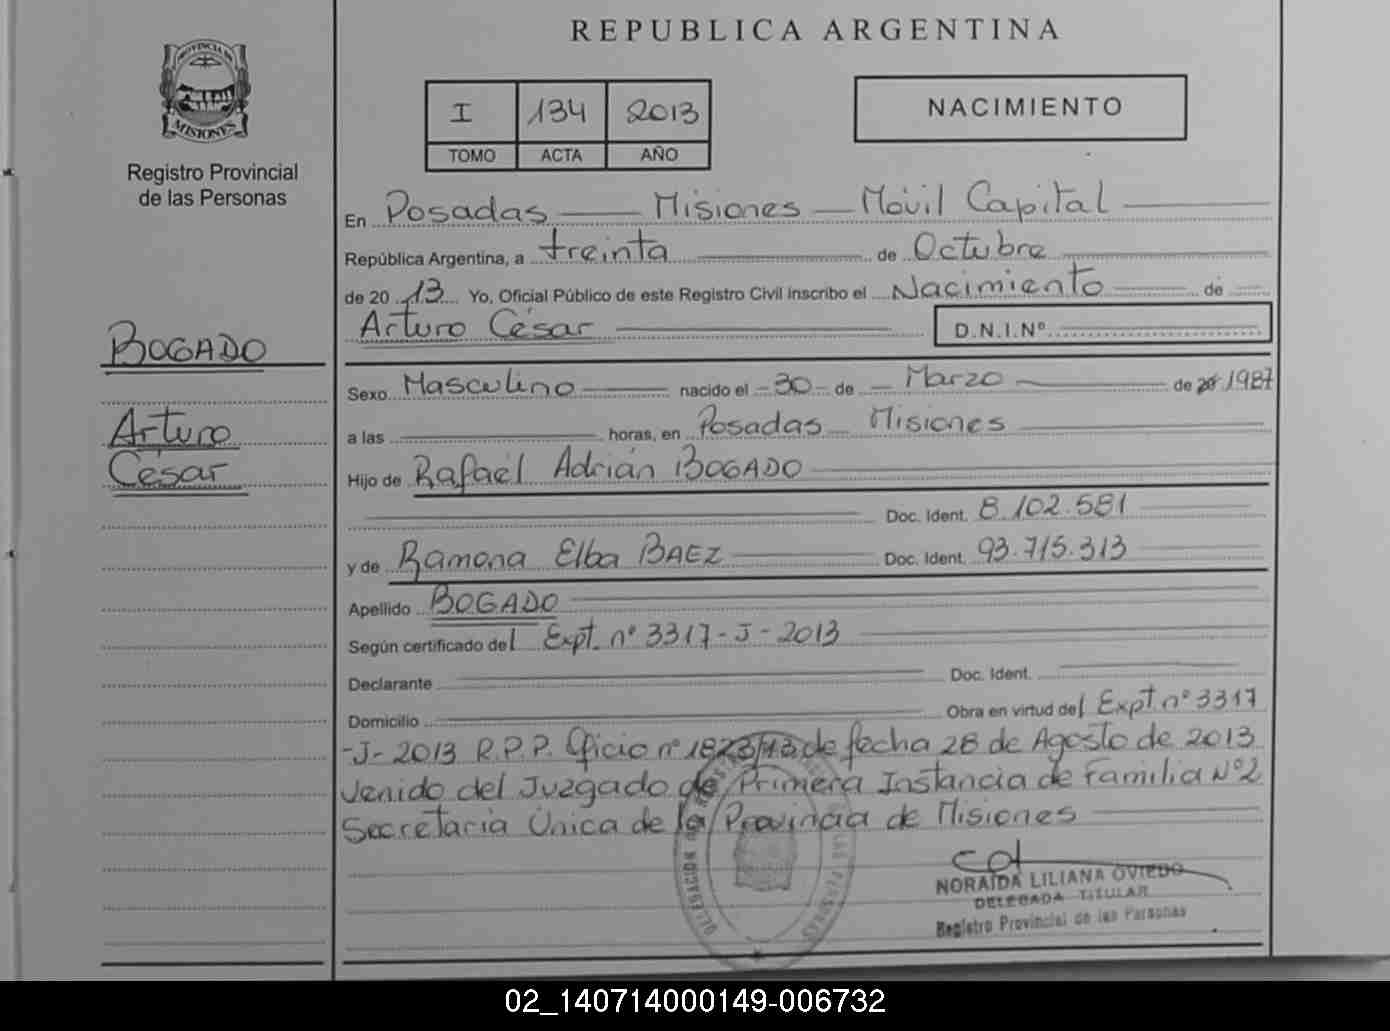 REPUBLICA ARGENTINA
PROVINCIA DE
MISIONES
Registro Provincial
de las Personas
I 134 2013
TOMO ACTA AÑO
NACIMIENTO
En Posadas Misiones Móvil Capital
República Argentina, a treinta de Octubre
de 20 13 Yo, Oficial Público de este Registro Civil inscribo el Nacimiento de
Arturo César D.N.I.Nº
BOGADO
Arturo
César
Sexo Masculino nacido el 30 de Marzo de 20 1987
a las horas, en Posadas Misiones
Hijo de Rafael Adrián BOGADO
Doc. Ident. 8.102.581
y de Ramona Elba BAEZ Doc. Ident. 93.715.313
Apellido BOGADO
Según certificado del Expt. nº 3317-J-2013
Declarante Doc. Ident.
Domicilio Obra en virtud del Expt. nº 3317
-J-2013 R.P.P. Oficio nº 1823/13 de fecha 28 de Agosto de 2013
venido del Juzgado de Primera Instancia de Familia Nº2
Secretaría Única de la Provincia de Misiones
NORAIDA LILIANA OVIEDO
DELEGADA TITULAR
Registro Provincial de las Personas
02_140714000149-006732